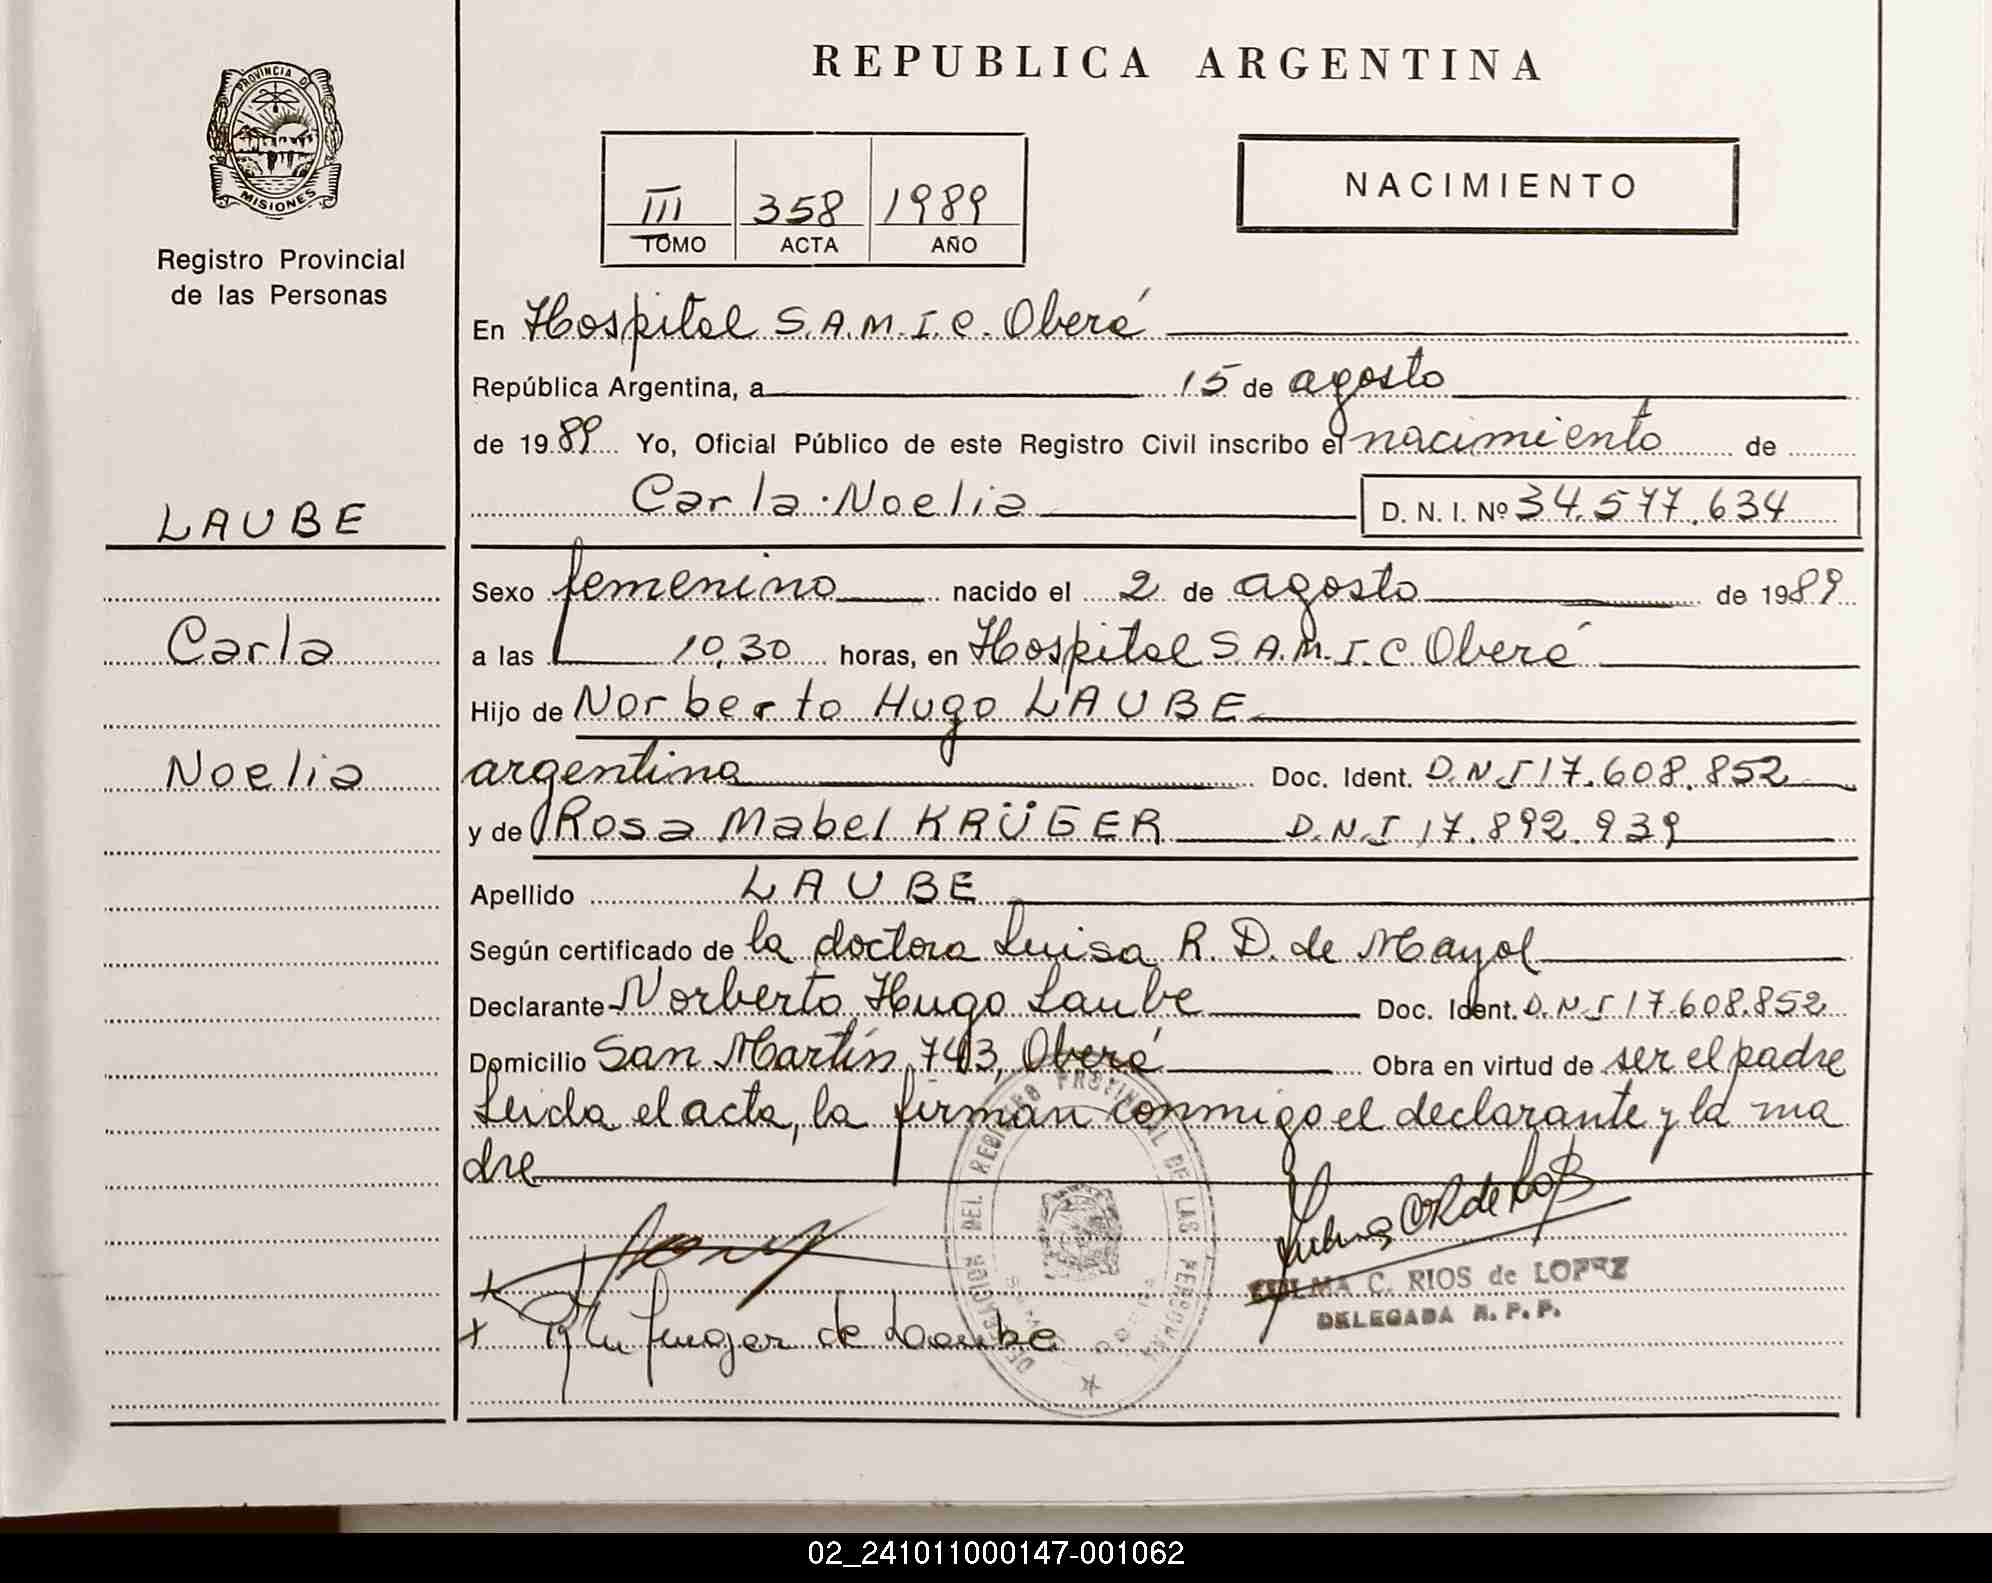 REPUBLICA ARGENTINA
PROVINCIA DE
MISIONES
Registro Provincial
de las Personas
III 358 1989
TOMO ACTA AÑO
NACIMIENTO
En Hospital S.A.M.I.C. Oberá
República Argentina, a 15 de agosto
de 1989 Yo, Oficial Público de este Registro Civil inscribo el nacimiento de
Carla Noelia D. N. I. Nº 34.577.634
LAUBE
Carla
Noelia
Sexo femenino nacido el 2 de agosto de 1989
a las 10,30 horas, en Hospital S.A.M.I.C Oberá
Hijo de Norberto Hugo LAUBE
argentina Doc. Ident. D.N.I 17.608.852
y de Rosa Mabel KRÜGER D.N.I 17.892.939
Apellido LAUBE
Según certificado de la doctora Luisa R. D. de Mayol
Declarante Norberto Hugo Laube Doc. Ident. D.N.I 17.608.852
Domicilio San Martín 743, Oberá Obra en virtud de ser el padre
Leida el acta, la firman conmigo el declarante y la ma
dre
DELEGACION DEL REGISTRO PROVINCIAL DE LAS PERSONAS
ZULMA C. RIOS de LOPEZ
DELEGADA R. P. P.
de Laube
02_241011000147-001062